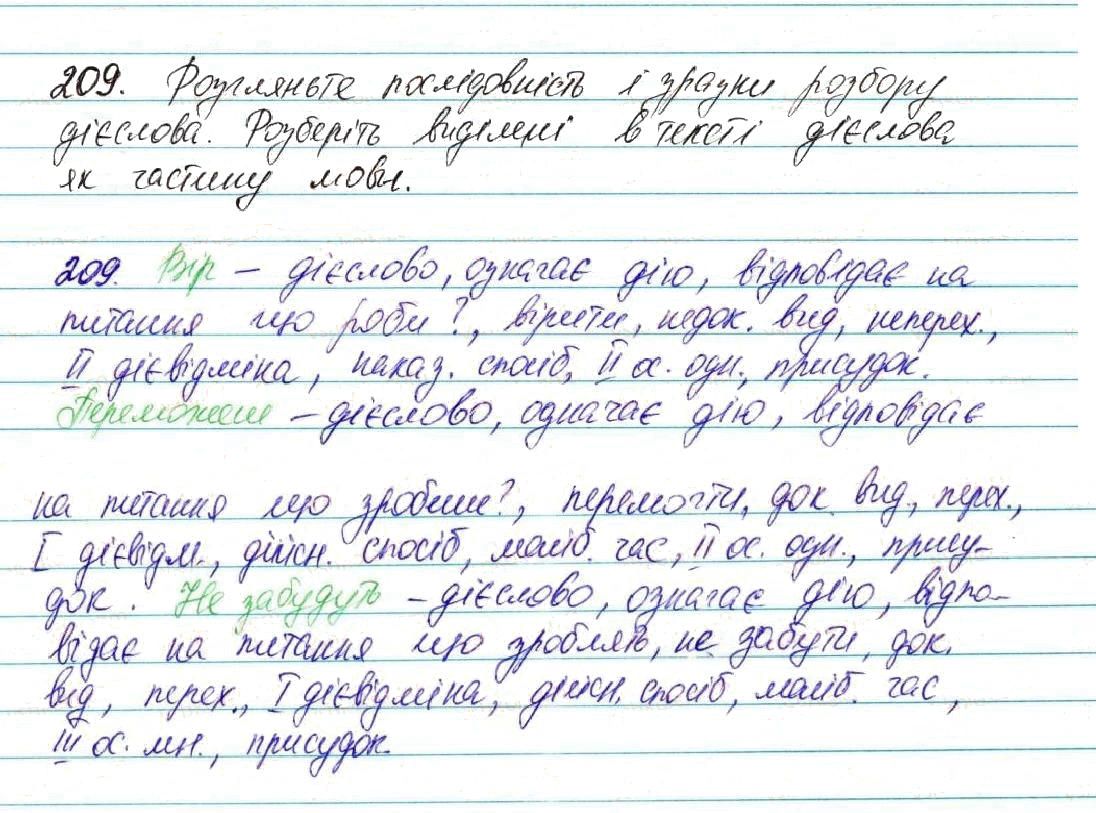 209. Розгляньте послідовність і зразки розбору
дієслова. Розберіть виділені в тексті дієслова
як частину мови.
209. Вір – дієслово, означає дію, відповідає на
питання що роби?, вірити, недок. вид, неперех.,
II дієвідміна, наказ. спосіб, II ос. одн., присудок.
Переможеш – дієслово, означає дію, відповідає
на питання що зробиш?, перемогти, док. вид, перех.,
I дієвідм., дійсн. спосіб, майб. час, II ос. одн., прису-
док. Не забудуть – дієслово, означає дію, відпо-
відає на питання що зроблять, не забути, док.
вид, перех., I дієвідміна, дійсн. спосіб, майб. час,
III ос. мн., присудок.